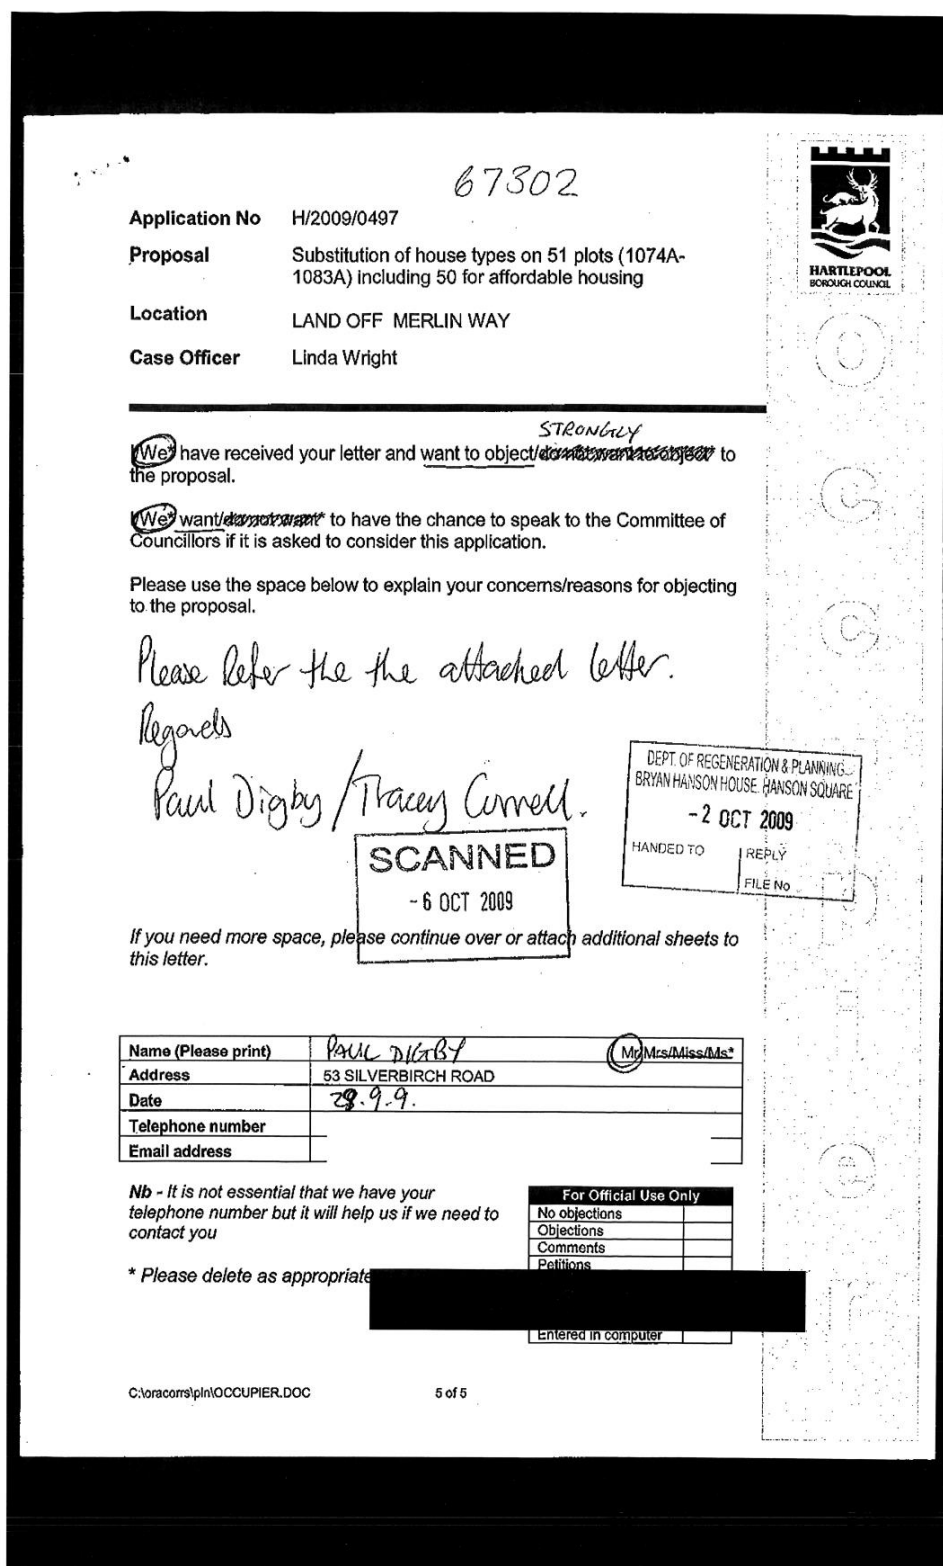 67302
HARTLEPOOL
BOROUGH COUNCIL
Application No H/2009/0497
Proposal Substitution of house types on 51 plots (1074A-
1083A) including 50 for affordable housing
Location LAND OFF MERLIN WAY
Case Officer Linda Wright
STRONGLY
I/We* have received your letter and want to object/do not want to object* to
the proposal.
I/We* want/do not want* to have the chance to speak to the Committee of
Councillors if it is asked to consider this application.
Please use the space below to explain your concerns/reasons for objecting
to the proposal.
Please Refer the the attached letter.
Regards
Paul Digby / Tracey
DEPT. OF REGENERATION & PLANNING
BRYAN HANSON HOUSE. HANSON SQUARE
- 2 OCT 2009
HANDED TO REPLY
FILE No
SCANNED
- 6 OCT 2009
If you need more space, please continue over or attach additional sheets to
this letter.
Name (Please print) PAUL DIGBY Mr/Mrs/Miss/Ms*
Address 53 SILVERBIRCH ROAD
Date 28.9.9.
Telephone number
Email address
Nb - It is not essential that we have your
telephone number but it will help us if we need to
contact you
* Please delete as appropriate
For Official Use Only
No objections
Objections
Comments
Petitions
Entered in computer
C:\oracorrs\pln\OCCUPIER.DOC 5 of 5
Occupier